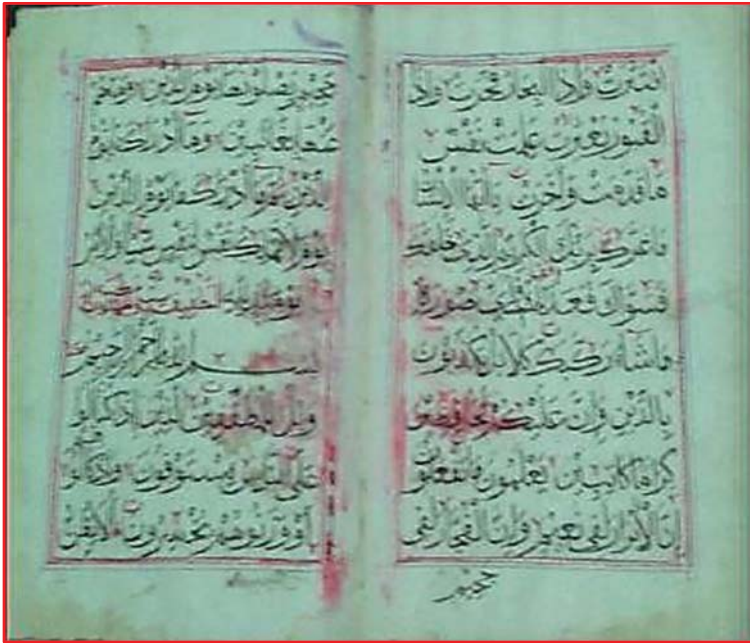 انتثرت واذا البحار فجرت واذا
القبور بعثرت علمت نفس
ما قدمت واخرت يا ايها الانسان
ما غرك بربك الكريم الذي خلقك
فسواك فعدلك في اي صورة
ما شاء ركبك كلا بل تكذبون
بالدين وان عليكم لحافظين
كراما كاتبين يعلمون ما تفعلون
ان الابرار لفي نعيم وان الفجار لفي
جحيم
جحيم يصلونها يوم الدين وما هم
عنها بغائبين وما ادريك ما يوم
الدين ثم ما ادريك ما يوم الدين
يوم لا تملك نفس لنفس شيئا والامر
يومئذ لله
بسم الله الرحمن الرحيم
ويل للمطففين الذين اذا اكتالوا
على الناس يستوفون واذا كالو
هم او وزنوهم يخسرون الا يظن